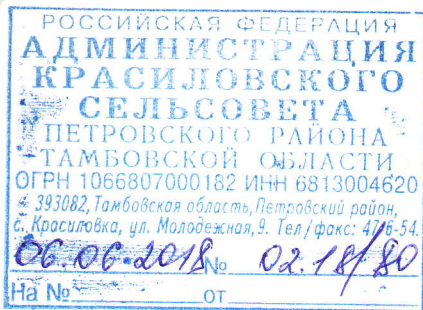 РОССИЙСКАЯ ФЕДЕРАЦИЯ
АДМИНИСТРАЦИЯ
КРАСИЛОВСКОГО
СЕЛЬСОВЕТА
ПЕТРОВСКОГО РАЙОНА
ТАМБОВСКОЙ ОБЛАСТИ
ОГРН 1066807000182 ИНН 6813004620
393082, Тамбовская область, Петровский район,
с. Красиловка, ул. Молодежная, 9. Тел/факс: 47/6-54.
06.06.2018 № 02.18/80
На № от